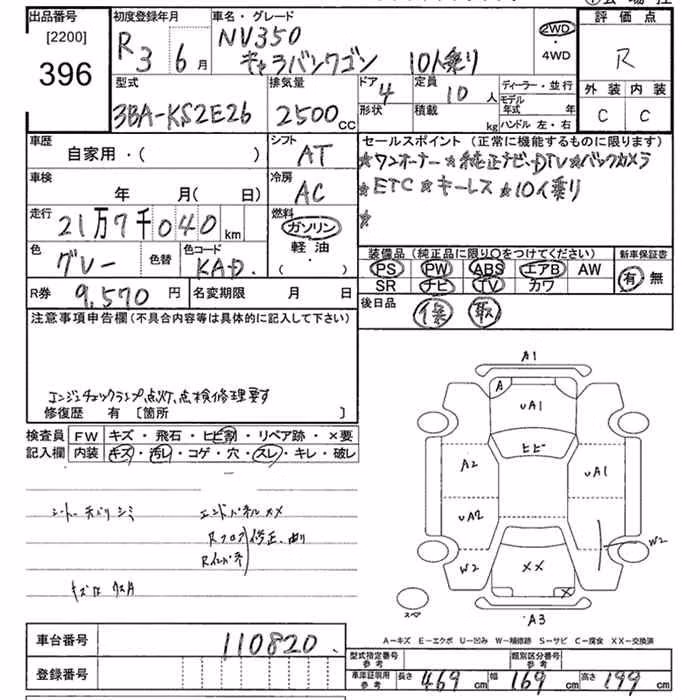 出品番号 初度登録年月 車名・グレード 評価点
[2200] R3 6月 NV350 2WD
396 キャラバンワゴン 10人乗り ・4WD R
型式 排気量 ドア 定員 ディーラー・並行 外装 内装
3BA-KS2E26 2500cc 4 10人 モデル年式 年 C C
形状 積載 kg ハンドル 左・右
車歴 シフト セールスポイント(正常に機能するものに限ります)
自家用・( ) AT ★ワンオーナー★純正ナビ、DTV★バックカメラ
車検 冷房 ★ETC★キーレス★10人乗り
年 月( 日) AC ★
走行 燃料
21万7千040km ガソリン
色 色替 色コード 軽油 装備品(純正品に限り○をつけてください) 新車保証書
グレー KAD. ( ・ ) PS PW ABS エアB AW 有・無
R券 9,570円 名変期限 月 日 SR ナビ TV カワ
注意事項申告欄(不具合内容等は具体的に記入して下さい) 後日品 保 取
エンジンチェックランプ点灯、点検修理要す
修復歴 有 [箇所 ]
検査員 FW キズ・飛石・ヒビ割・リペア跡・×要
記入欄 内装 キズ・汚レ・コゲ・穴・スレ・キレ・破レ
A1
A
UA1
ヒビ
A2 UA1
UA2
W2
W2 XX X
A3
スペ
エンドパネル
Rフロア
修正、
A−キズ E−エクボ U−凹み W−補修跡 S−サビ C−腐食 XX−交換済
車台番号 110820
型式指定番号 参考 類別区分番号 参考
登録番号 車庫証明用 参考 長さ 469cm 幅 169cm 高さ 199cm